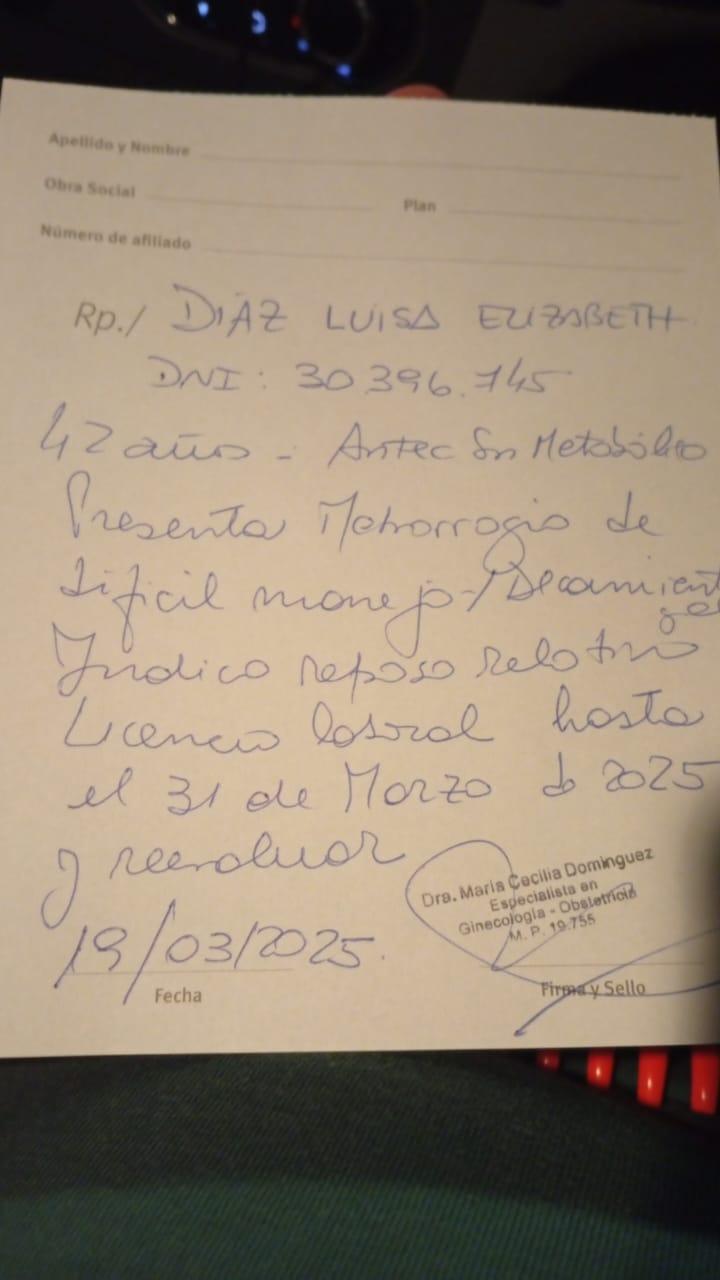 Apellido y Nombre
Obra Social
Plan
Número de afiliado
Rp./ DIAZ LUISA ELIZABETH
DNI: 30.396.745
42 años - Antec Sn Metabólico
Presenta Metrorragia de
dificil manejo -
Indico reposo relativo
Licencia laboral hasta
el 31 de Marzo de 2025
y reevaluar
19/03/2025.
Fecha
Dra. Maria Cecilia Dominguez
Especialista en
Ginecología - Obstetricia
M. P. 19.755
Firma y Sello